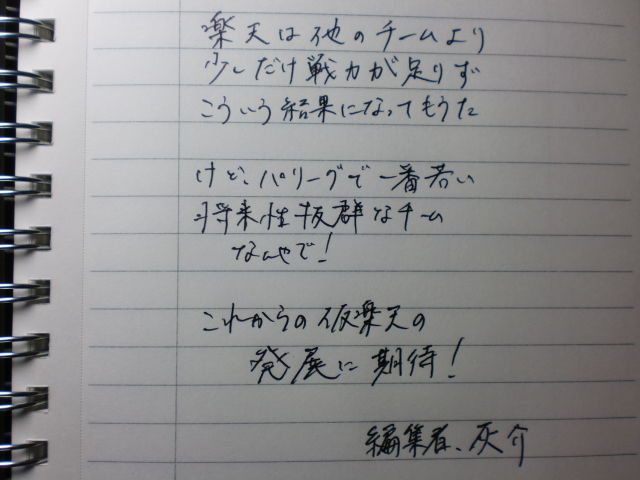 楽天は他のチームより
少しだけ戦力が足りず
こういう結果になってもうた
けど、パリーグで一番若い
将来性抜群なチーム
なんやで!
これからの仮楽天の
発展に期待!
編集者、灰介